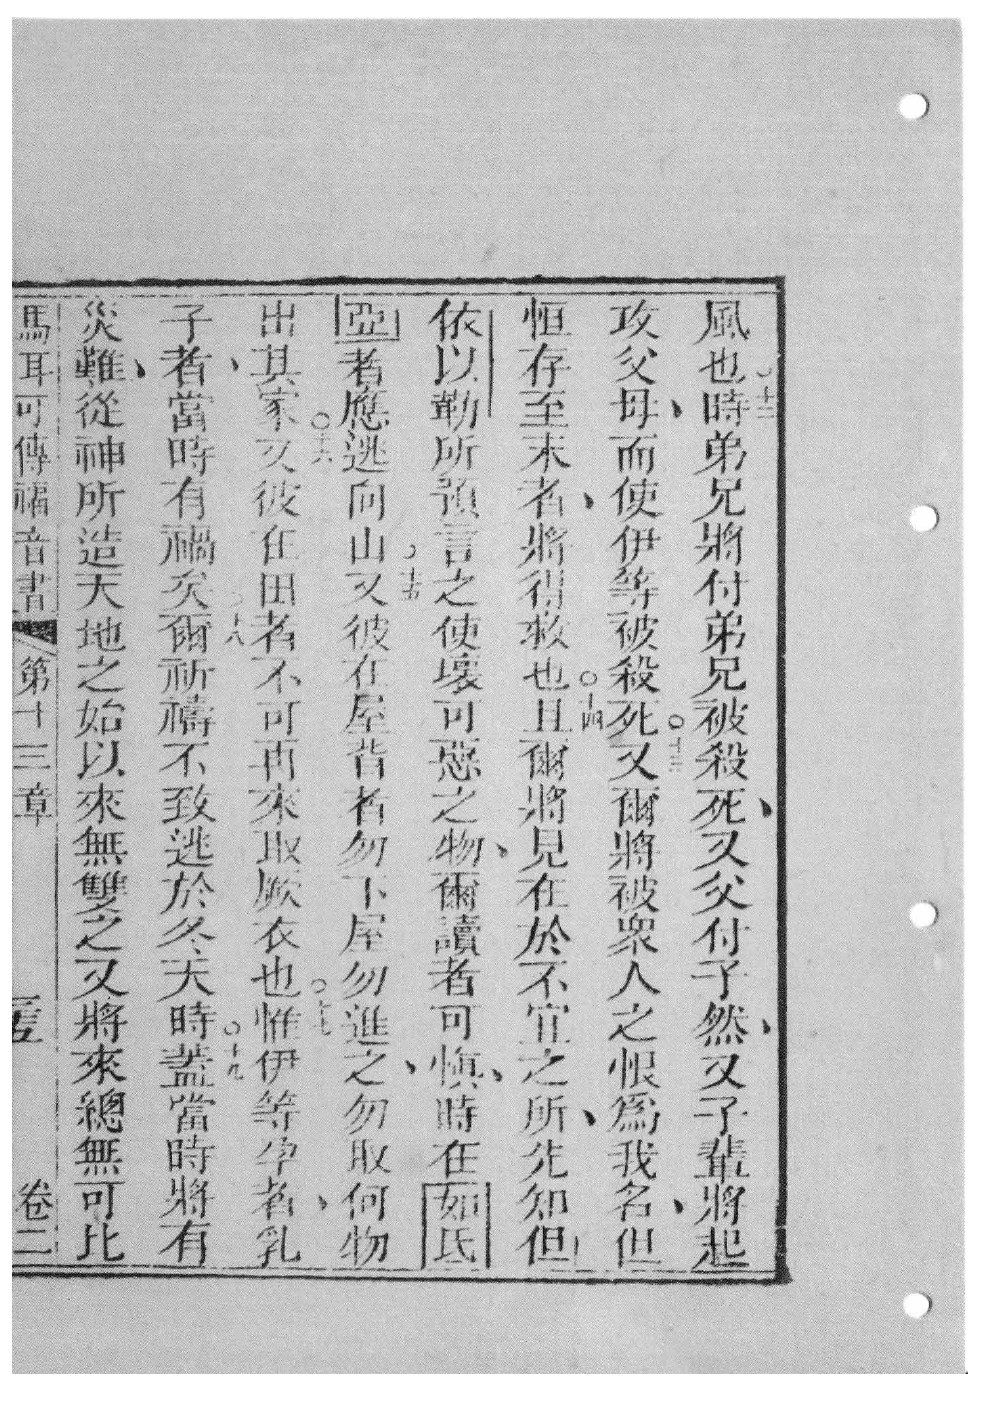 風也○十二時弟兄將付弟兄被殺死、又父付子然、又子輩將起
攻父母、而使伊等被殺死○十三又爾將被眾人之恨爲我名、但
恒存至末者、將得救也○十四且爾將見在於不宜之所、先知但
依以勒所預言之使壞可惡之物、爾讀者可慎、時在如氐
亞者應逃向山○十五又彼在屋背者勿下屋勿進之、勿取何物
出其家○十六又彼在田者不可再來取厥衣也○十七惟伊等孕者、乳
子者、當時有禍矣○十八爾祈禱不致逃於冬天時○十九蓋當時將有
災難、從神所造天地之始以來無雙之又將來總無可比
馬耳可傳福音書 第十三章 卷二